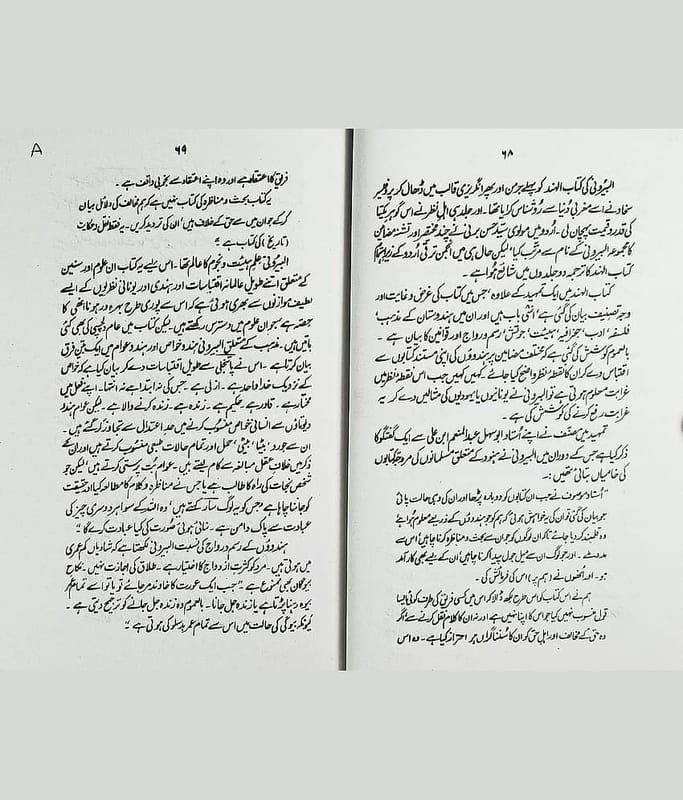 ۶۸
البیرونی کی کتاب الہند کو پہلے جرمن اور پھر انگریزی قالب میں ڈھال کر پروفیسر
سخاؤ نے اسے مغربی دُنیا سے رُوشناس کرایا تھا۔ اور جلد ہی اہلِ نظر نے اس گوہرِ یکتا
کی قدر و قیمت پہچان لی۔ اُردو میں مولوی سید حسن برنی نے چند مختصر اور تشنہ مضامین
کا مجموعہ البیرونی کے نام سے مرتّب کیا، لیکن حال ہی میں انجمن ترقی اُردو کے زیرِ اہتمام
کتاب الہند کا ترجمہ دو جلدوں میں شائع ہوا ہے۔
کتاب الہند میں ایک تمہید کے علاوہ، جس میں کتاب کی غرض و غایت اور
وجہِ تصنیف بیان کی گئی ہے، اسّی باب ہیں اور ان میں ہندوستان کے مذہب،
فلسفہ، ادب، جغرافیہ، ہیئت، جوتش، رسم و رواج اور قوانین کا بیان ہے۔
بالعموم کوشش کی گئی ہے کہ مختلف مضامین پر ہندوؤں کی اپنی مستند کتابوں سے
اقتباس دے کر ان کا نقطۂ نظر واضح کیا جائے۔ کہیں کہیں جب اس نقطۂ نظر میں
غرابت معلوم ہوتی ہے تو البیرونی نے یونانیوں یا یہودیوں کی مثالیں دے کر یہ
غرابت رفع کرنے کی کوشش کی ہے۔
تمہید میں مصنّف نے اپنے اُستاد ابو سہل عبدالمنعم ابن علی سے ایک گفتگو کا
ذکر کیا ہے جس کے دوران میں البیرونی نے ہنود کے متعلق مسلمانوں کی مروجہ کتابوں
کی خامیاں بتائی تھیں:۔
"اُستادِ موصوف نے جب ان کتابوں کو دوبارہ پڑھا اور ان کی وہی حالت پائی
جو بیان کی گئی تو ان کی یہ خواہش ہوئی کہ ہم کو جو ہندوؤں کے ذریعے معلوم ہوا ہے
وہ قلمبند کر دیا جائے تاکہ ان لوگوں کو جو ان سے بحث و مناظرہ کرنا چاہیں اس سے
مدد ملے۔ اور جو لوگ ان سے میل جول پیدا کرنا چاہیں ان کے لیے بھی کارآمد
ہو۔ اور اُنھوں نے (ہم پر) اس کی فرمائش کی۔
ہم نے اس کتاب کو اس طرح لکھ ڈالا کہ اس میں کسی فریق کی طرف کوئی ایسا
قول منسوب نہیں کیا جو اس کا اپنا نہیں ہے اور نہ ان کا کلام نقل کرنے سے اگر
وہ حق کے مخالف اور اہلِ حق کو ان کا سُننا گراں ہو احتراز کیا ہے۔ وہ اس
A
۶۹
فریق کا اعتقاد ہے اور وہ اپنے اعتقاد سے بخوبی واقف ہے۔
یہ کتاب بحث و مناظرہ کی کتاب نہیں ہے کہ ہم مخالف کی دلائل بیان
کر کے جو ان میں سے حق کے خلاف ہیں، ان کی تردید کریں۔ یہ فقط نقل و حکایت
(تاریخ) کی کتاب ہے"
البیرونی علمِ ہیئت و نجوم کا عالم تھا۔ اس لیے یہ کتاب ان علوم اور سنین
کے متعلق اتنے طویل عالمانہ اقتباسات اور ہندی اور یونانی نظریوں کے ایسے
لطیف موازنوں سے بھری ہوئی ہے کہ اس سے پوری طرح بہرہ ور ہونا انھی کا
حصّہ ہے جو ان علوم میں دسترس رکھتے ہیں۔ لیکن کتاب میں عام دلچسپی کی بھی کئی
باتیں ہیں۔ مذہب کے متعلق البیرونی ہندو خواص اور ہندو عوام میں ایک بیّن فرق
بیان کرتا ہے۔ اس نے پاتنجلی سے طویل اقتباسات دے کر بیان کیا ہے کہ خواص
کے نزدیک خدا واحد ہے۔ ازلی ہے۔ جس کی نہ ابتدا ہے نہ انتہا۔ اپنے فعل میں
مختار ہے۔ قادر ہے۔ حکیم ہے۔ زندہ ہے۔ زندہ کرنے والا ہے۔ لیکن عوام ہندو
دیوتاؤں سے انسانی خواص منسوب کرنے میں حدِ اعتدال سے تجاوز کر گئے ہیں۔
ان سے جورو، بیٹا، بیٹی، حمل اور تمام حالات طبعی منسوب کرتے ہیں اور ان کے
ذکر میں خلافِ عقل مبالغہ سے کام لیتے ہیں۔ عوام بُت پرستی کرتے ہیں "لیکن جو
شخص نجات کی راہ کا طالب ہے یا جس نے مناظرہ و کلام کا مطالعہ کیا اور حقیقت
کو جاننا چاہا ہے (جس کو یہ لوگ سار کہتے ہیں) وہ اللہ کے سوا ہر دوسری چیز کی
عبادت سے پاک دامن ہے۔ بنائی ہوئی صورت کی کیا عبادت کرے گا"
ہندوؤں کے رسم و رواج کی نسبت البیرونی لکھتا ہے کہ شادیاں کم عمری
میں ہوتی ہیں۔ مرد کو کثرتِ ازدواج کا اختیار ہے۔ طلاق کی اجازت نہیں۔ نکاحِ
بیوگان بھی ممنوع ہے۔ "جب ایک عورت کا خاوند مر جائے تو یا تو اسے تمام عمر
بیوہ رہنا پڑتا ہے یا زندہ جل جانا۔ بالعموم وہ زندہ جل جانے کو ترجیح دیتی ہے۔
کیونکہ بیوگی کی حالت میں اس سے تمام عمر بدسلوکی ہوتی ہے"